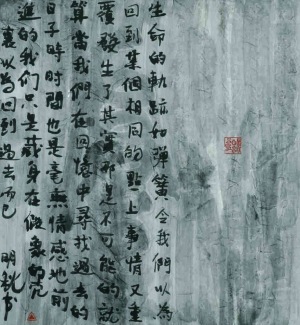 生命的軌跡如彈簧令我們以為
回到某個相同的點上事情又重
覆發生了其實那是不可能的就
算當我們在回憶中尋找過去的
日子時時間也是毫無情感地前
進的我們只是藏身在假象的殼
裏以為回到過去而已 明